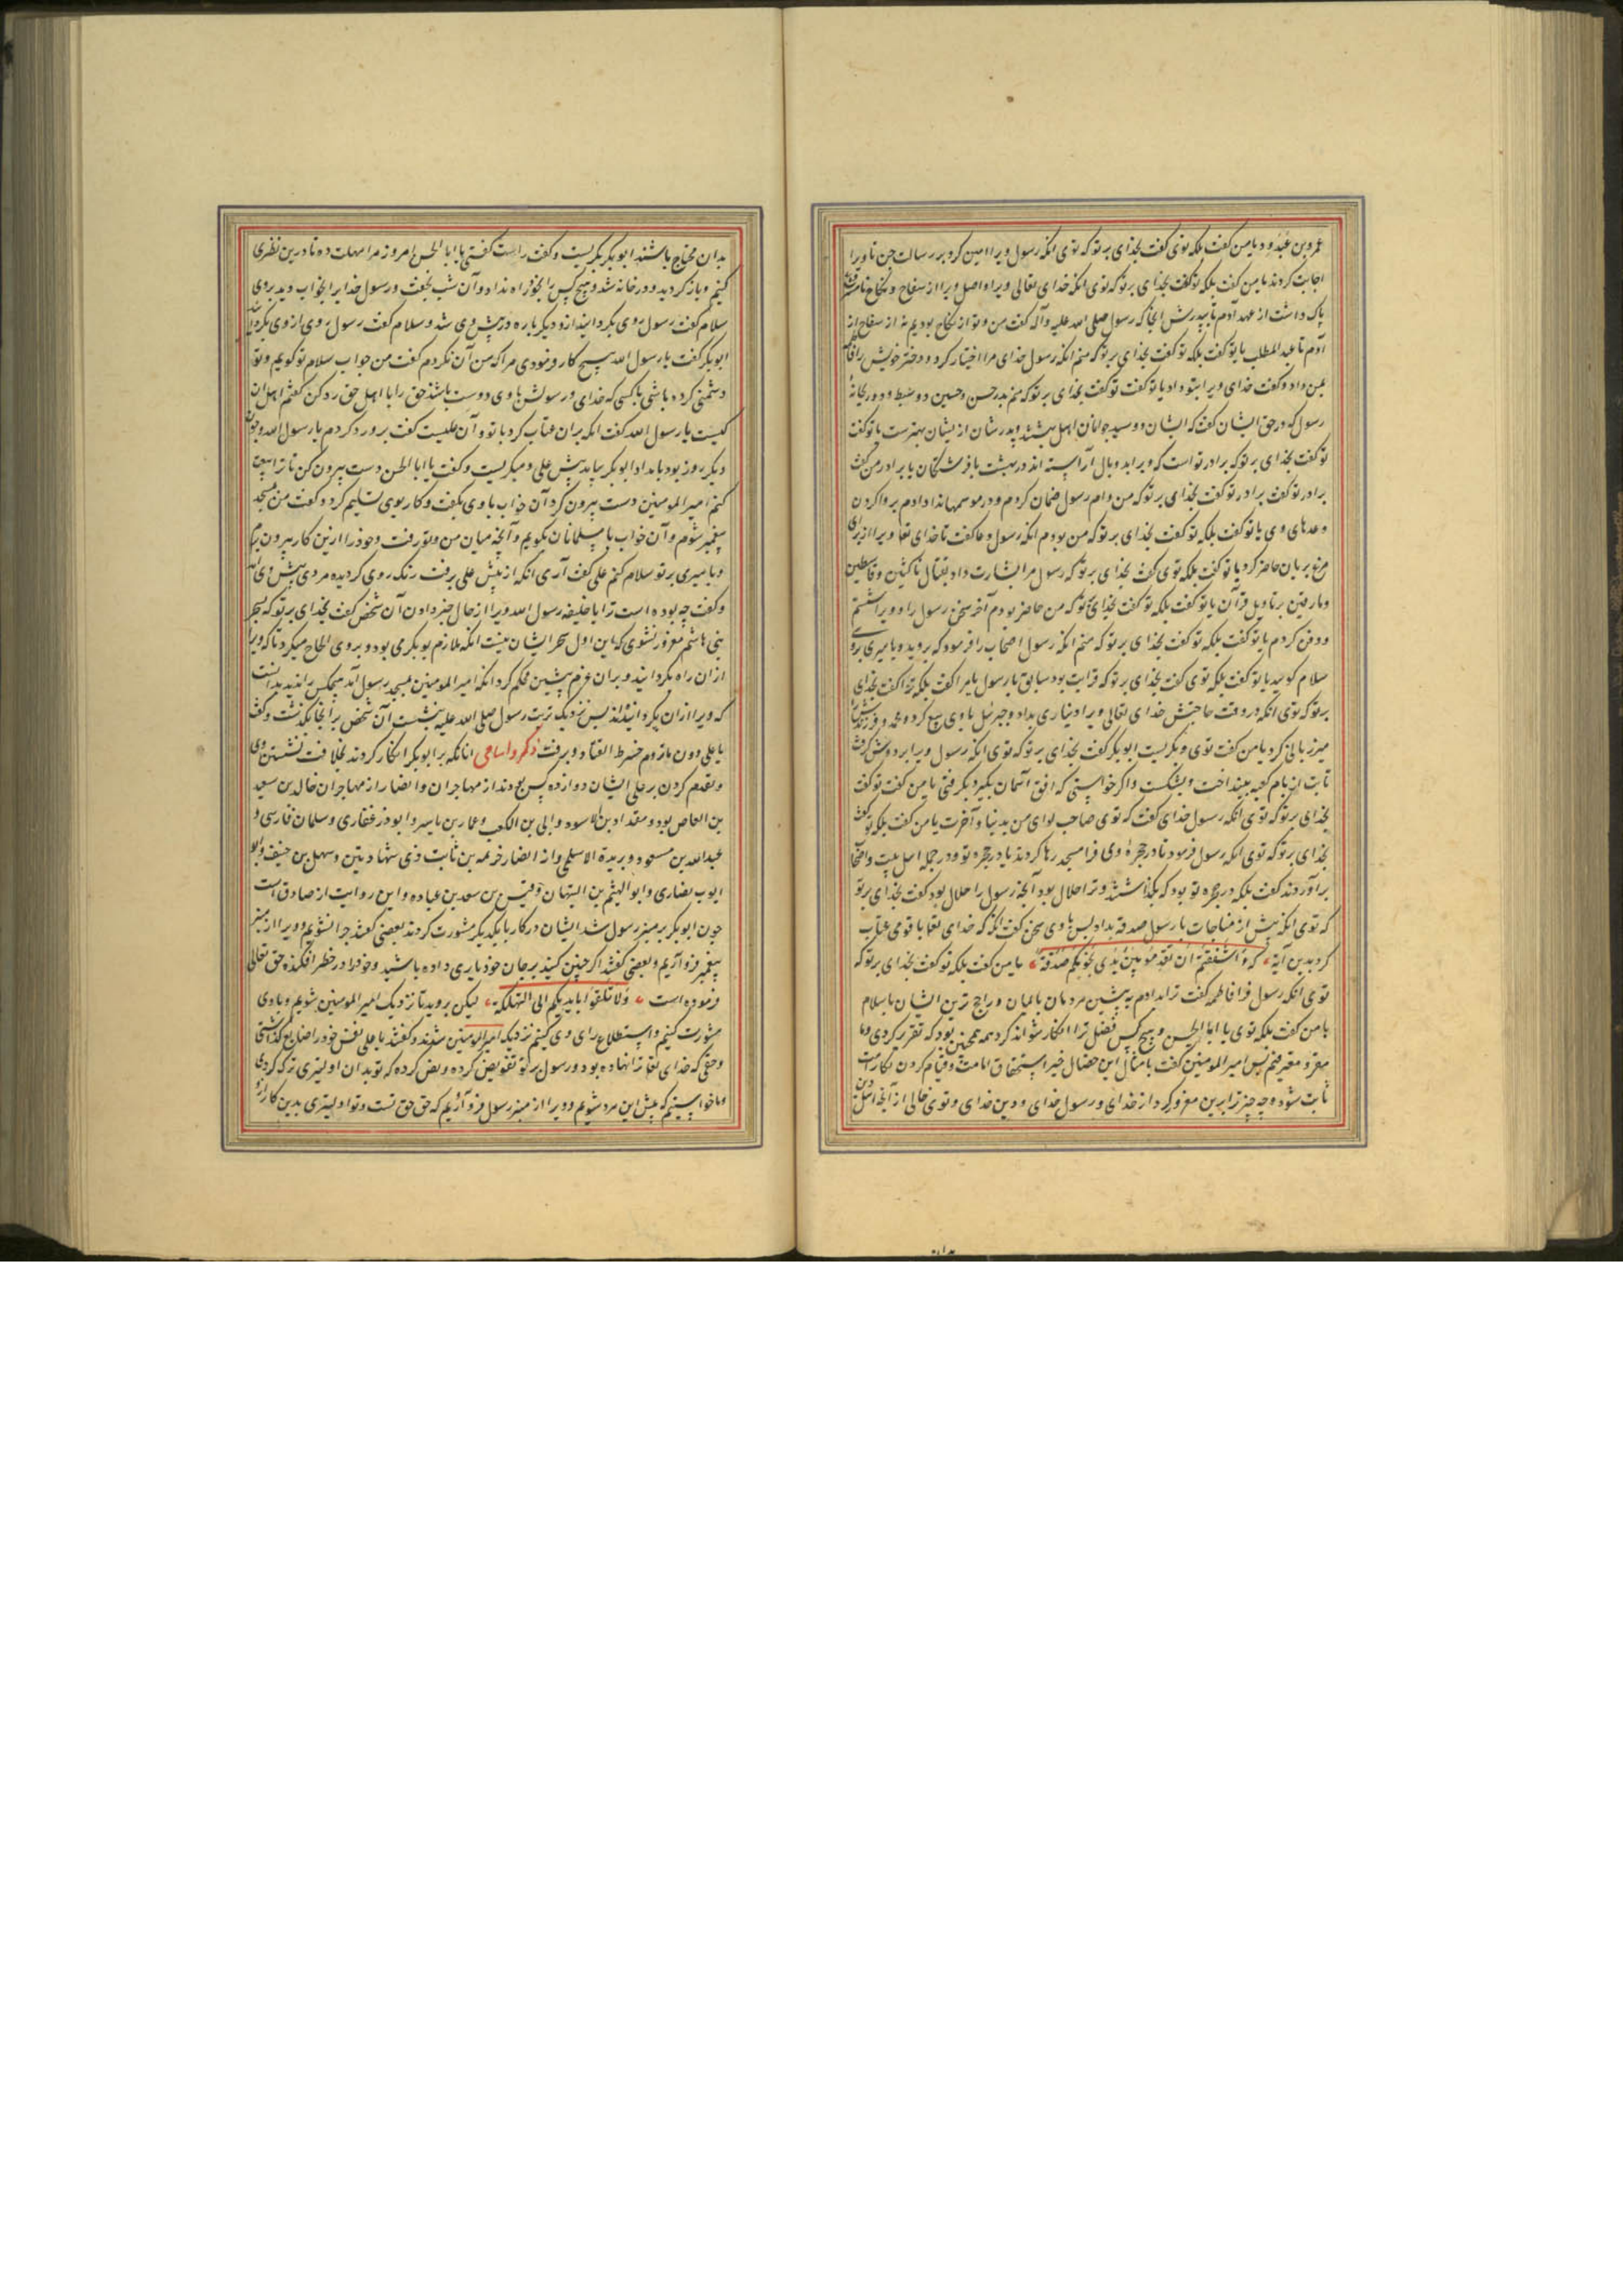 عمرو بن عبدود یا من گفت بلکه توی گفت بخدای بر تو که توی انکه رسول ویرا امین کرد بر رسالت جن تا ویرا
اجابت کردند یا من گفت بلکه تو گفت بخدای بر تو که توی انکه خدای تعالی ویرا و اصل ویرا از سفاح و نکاح نامشروع
پاک داشت از عهد آدم تا پدرش آنجا که رسول صلی الله علیه وآله گفت من و تو از نکاح بودیم نه از سفاح از
آدم تا عبد المطلب یا تو گفت بلکه تو گفت بخدای بر تو که منم انکه رسول خدای مرا اختیار کرد و دختر خویش را فاطمه
بمن داد و گفت خدای ویرا بتو داد یا تو گفت تو گفت بخدای بر تو که منم پدر حسن و حسین دو سبط و دو ریحانهٔ
رسول که در حق ایشان گفت که ایشان دو سید جوانان اهل بهشتند و پدرشان از ایشان بهترست یا تو گفت
تو گفت بخدای بر تو که برادر تو است که ویرا بدو بال آراسته اند در بهشت با فرشتگان یا برادر من گفت
برادر تو گفت برادر تو گفت بخدای بر تو که من وام رسول ضمان کردم و در موسمها ندا دادم بروا کردن
وعدهای وی یا تو گفت بلکه تو گفت بخدای بر تو که من بودم انکه رسول دعا گفت تا خدای تعالی ویرا از برای
مرغ بریان حاضر کرد یا تو گفت بلکه توی گفت بخدای بر تو که رسول مرا بشارت داد بقتال ناکثین و قاسطین
ومارقین بر تاویل قرآن یا تو گفت بلکه تو گفت بخدای بر تو که من حاضر بودم آخر سخن رسول را و ویرا شستم
و دفن کردم یا تو گفت بلکه تو گفت بخدای بر تو که منم انکه رسول اصحاب را فرمود که بروید و بامیری بر وی
سلام گویید یا تو گفت بلکه توی گفت بخدای بر تو که قرابت بود سابق با رسول یا مرا گفت بلکه ترا گفت بخدای
بر تو که توی انکه در وقت حاجتش خدای تعالی ویرا دیناری بداد و جبرئیل با وی بیع کرد و محمد و فرزندانش را
میزبانی کرد یا من گفت توی و بگریست ابوبکر گفت بخدای بر تو که توی انکه رسول ویرا بر دوش گرفت
تا بت از بام کعبه بینداخت و بشکست و اگر خواستی که افق آسمان بگیرد بگرفتی یا من گفت تو گفت
بخدای بر تو که توی انکه رسول خدای گفت که توی صاحب لوای من بدنیا و آخرت یا من گفت بلکه تو گفت
بخدای بر تو که توی انکه رسول فرمود تا در حجرهٔ وی فرا مسجد رها کردند یا در حجره تو و در جمله اهل بیت و اصحاب
برآوردند گفت بلکه در حجره تو بود که بگذاشتند و ترا حلال بود آنچه رسول را حلال بود گفت بخدای بر تو
که توی انکه پیش از مناجات با رسول صدقه بداد پس با وی سخن گفت انکه که خدای تعالی با قومی عتاب
کرد بدین آیه که ءاشفقتم ان تقدموا بین یدی نجویکم صدقة یا من گفت بلکه تو گفت بخدای بر تو که
توی انکه رسول فرا فاطمه گفت ترا بدادم به پیشین مردمان بایمان و راجح ترین ایشان باسلام
یا من گفت بلکه توی یا ابا الحسن و هیچ کس فضل ترا انکار نتواند کرد همه همچنین بود که تقریر کردی و ما
مقر و معترفیم پس امیر المومنین گفت بامثال این خصال خیر استحقاق امامت و قیام کردن بکار امت
ثابت شود و چه چیز ترا برین مغرور کرد از خدای و رسول خدای و دین خدای و توی خالی از آنچه اهل دین
بدان محتاج باشند ابوبکر بگریست و گفت راست گفتی یا ابا الحسن امروز مرا مهلت ده تا درین نظری
کنم و باز گردید و در خانه شد و هیچ کس را بخود راه نداد و آن شب بخفت و رسول خدایرا بخواب دید بروی
سلام گفت رسول روی بگردانید ازو دیگر باره در پیش وی شد و سلام گفت رسول روی از وی بگردانید
ابوبکر گفت یا رسول الله هیچ کار فرمودی مرا که من آن نکردم گفت من جواب سلام تو گویم و تو
دشمنی کرده باشی با کسی که خدای و رسولش با وی دوست باشند حق را با اهل حق رد کن گفتم اهل آن
کیست یا رسول الله گفت انکه بران عتاب کرد با تو و آن علیست گفت برو رد کردم یا رسول الله و چون
دیگر روز بود بامداد ابوبکر بیامد پیش علی و میگریست و گفت یا ابا الحسن دست بیرون کن تا ترا بیعت
کنم امیر المومنین دست بیرون کرد آن خواب با وی بگفت و کار بوی تسلیم کرد و گفت من بمسجد
پیغمبر شوم و آن خواب با مسلمانان بگویم و آنچه میان من و تو رفت و خود را ازین کار بیرون برم
و بامیری بر تو سلام کنم علی گفت آری انکه از پیش علی برفت رنگ روی گردیده مردی پیش وی آمد
و گفت چه بوده است ترا یا خلیفه رسول الله ویرا از حال خبر داد آن شخص گفت بخدای بر تو که بسحر
بنی هاشم مغرور نشوی که این اول سحر ایشان نیست انکه ملازم بوبکر می بود و بر وی الحاح میکرد تا که ویرا
ازان راه بگردانید و بران عزم پیشین محکم کرد انکه امیر المومنین بمسجد رسول آمد هیچکس را ندید بدانست
که ویرا ازان بگردانیده‌اند پس نزدیک تربت رسول صلی الله علیه بنشست آن شخص بر آنجا بگذشت و گفت
یا علی دون ماتروم خرط القتاد و برفت ذکر و اسامی انانکه بر ابوبکر انکار کردند بخلافت نشستن وی
و تقدم کردن بر علی ایشان دوازده کس بودند از مهاجران و انصار از مهاجران خالد بن سعید
بن العاص بود و مقداد بن الاسود و ابی بن الکعب و عمار بن یاسر و ابوذر غفاری و سلمان فارسی و
عبدالله بن مسعود و بریدة الاسلمی و از انصار خزیمه بن ثابت ذی شهادتین و سهل بن حنیف و ابو
ایوب نصاری و ابو الهیثم بن التیهان و قیس بن سعد بن عباده و این روایت از صادق است
چون ابوبکر بر منبر رسول شد ایشان در کار با یکدیگر مشورت کردند بعضی گفتند چرا نشویم و ویرا از منبر
پیغمبر فرو آریم و بعضی گفتند اگر چنین کنید بر جان خود یاری داده باشید و خود را در خطر افکنده حق تعالی
فرموده است ولا تلقوا بایدیکم الی التهلکة لیکن بروید تا نزدیک امیر المومنین شویم و با وی
مشورت کنیم و استطلاع رای وی کنیم نزدیک امیر المومنین شدند و گفتند یا علی نفس خود را ضایع گذاشتی
و حقی که خدای تعالی ترا نهاده بود و رسول بر تو تفویض کرده و نص کرده که تو بدان اولیتری ترک کردی
و ما خواستیم که پیش این مرد شویم و ویرا از منبر رسول فرو آریم که حق حق تست و تو اولیتری بدین کار ازو